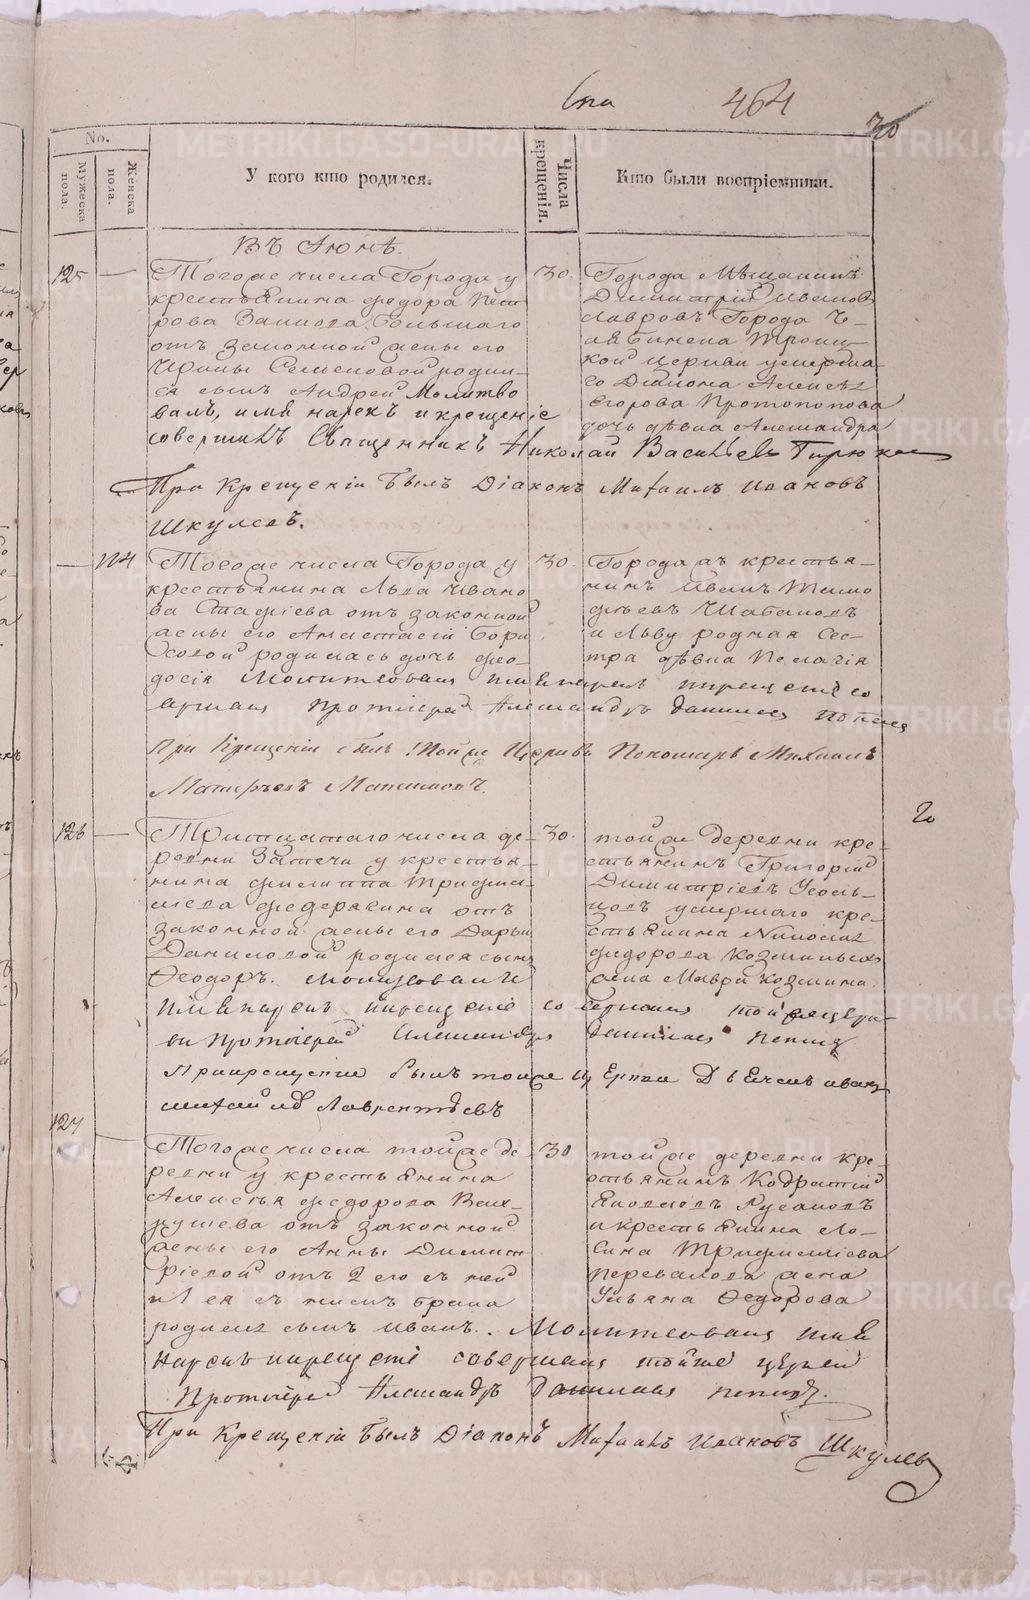 464
30
No.
Мужеска пола.
Женска пола.
У кого кто родился.
Числа крещенія.
Кто были воспріемники.
Въ Іюнѣ.
125 — Тогоже числа Города у
крестьянина Федора Пет
рова Большаго
отъ законной жены его
Ирины Семеновой родил-
ся сынъ Андрей Молитво
валъ, имя нарекъ и крещеніе
совершилъ Священникъ Николай Васильевъ
30. Города Мѣщанинъ
Димитрій Ивановъ
Лавровъ Города Ч-
елябинска Троиц-
кой церкви умерша-
го Діакона Алексѣя
Егорова Протопопова
дочь дѣвка Александра
При Крещеніи Былъ Діаконъ Михаилъ Ивановъ
Шкулевъ.
— 114 Тогоже числа Города у
крестьянина Льва Ивано
ва Стафіева отъ законной
жены его Анастасіи Бори
совой родилась дочь Фео-
досія Молитвовалъ имя нарекъ и крещеніе со
вершилъ Протоіерей Александръ Даниловъ
30. Города жъ крестья-
нинъ Иванъ Тимо
фѣевъ Шабаловъ
и Льву родная сес-
тра дѣвка Пелагія
При Крещеніи былъ тойже Церкви Пономарь Михаилъ
20
126 — Тритцатаго числа де-
ревни Затечи у крестья-
нина Филиппа Трифи-
лиева Федерягина отъ
законной жены его Дарьи
Даниловой родился сынъ
Феодоръ. Молитвовалъ
имя нарекъ и крещеніе совершилъ той же церк-
ви Протоіерей Александръ Даниловъ
30. тойже деревни кре-
стьянинъ Григорій
Димитріевъ Усоль-
цовъ умершаго кре-
стьянина Николая
Федорова Козминыхъ
жена Мавра Козмина.
При крещеніи былъ тойже Церкви Дьячекъ Иванъ
Михайловъ Лаврентьевъ
127 — Тогоже числа тойже де-
ревни у крестьянина
Алексѣя Федорова
отъ законной
жены его Анны Димит
ріевой отъ 2 его съ ней
и 1 ея съ нимъ брака
родился сынъ Иванъ. Молитвовалъ имя
нарекъ и крещеніе совершилъ тойже церкви
Протоіерей Александръ Даниловъ
30 тойже деревни кре-
стьянинъ Кодратій
Русановъ
и крестьянина Ло-
гина Трифиліева
Перевалова жена
Ульяна Федорова
При Крещеніи Былъ Діаконъ Михаилъ Ивановъ Шкулевъ